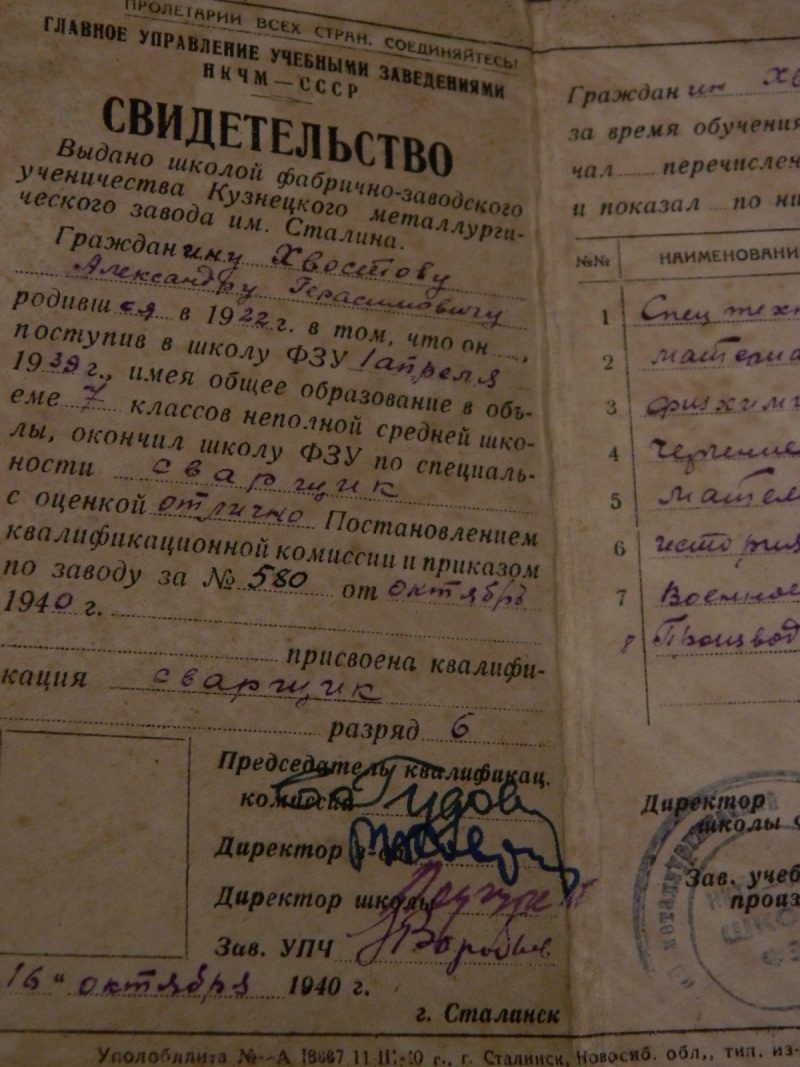 ПРОЛЕТАРИИ ВСЕХ СТРАН, СОЕДИНЯЙТЕСЬ!
ГЛАВНОЕ УПРАВЛЕНИЕ УЧЕБНЫМИ ЗАВЕДЕНИЯМИ
НКЧМ—СССР
СВИДЕТЕЛЬСТВО
Выдано школой фабрично-заводского
ученичества Кузнецкого металлурги-
ческого завода им. Сталина.
Гражданину Хвостову
Александру Герасимовичу
родившемся в 1922 г. в том, что он
поступив в школу ФЗУ 1 апреля
1939 г., имея общее образование в объ-
еме 7 классов неполной средней шко-
лы, окончил школу ФЗУ по специаль-
ности сварщик
с оценкой отлично Постановлением
квалификационной комиссии и приказом
по заводу за № 580 от октябрь
1940 г.
присвоена квалифи-
кация сварщик
разряд 6
Председатель квалификац.
комиссии
Директор
Директор школы
Зав. УПЧ
16 " октября 1940 г.
г. Сталинск
г., г. Сталинск, Новосиб. обл., тип. из-
Гражданин Хв
за время обучения
чал перечислен
и показал по ни
№№ НАИМЕНОВАНИ
1 Спец тех
2 материа
3 физ хим
4 Черчение
5 матем
6 истории
7 Военное
8 Производ
Директор
школы
Зав. учеб
произ